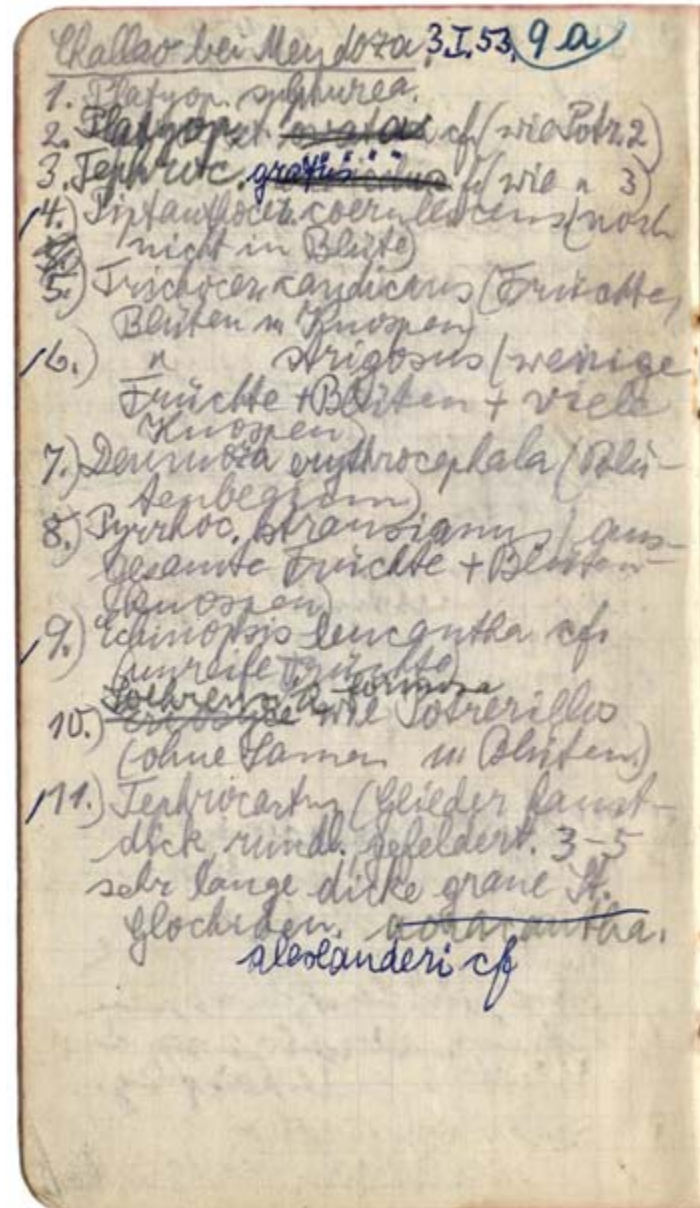 Challao bei Mendoza, 3.I.53, 9a
1. Platyop. sulphurea.
2. Platyop. ovata cf (wie Potr. 2)
3. Tephroc. gratus cf (wie " 3)
14.) Piptanthocer. coerulescens (noch
nicht in Blüte)
5.) Trichocer. candicans (Früchte,
Blüten u Knospen)
16.) " strigosus (wenige
Früchte + Blüten + viele
Knospen)
7.) Denmoza erythrocephala (Blü-
tenbeginn)
8.) Pyrrhoc. strausianus (aus-
gesamte Früchte + Blüten
Knospen)
19.) Echinopsis leucantha cf.
(unreife Früchte)
Soehrensia formosa
10.) wie Potrerillos
(ohne Samen u Blüten)
111.) Tephrocactus (Glieder faust-
dick, rundl. gefeldert. 3-5
sehr lange dicke graue St.
Glochiden.
alexanderi cf